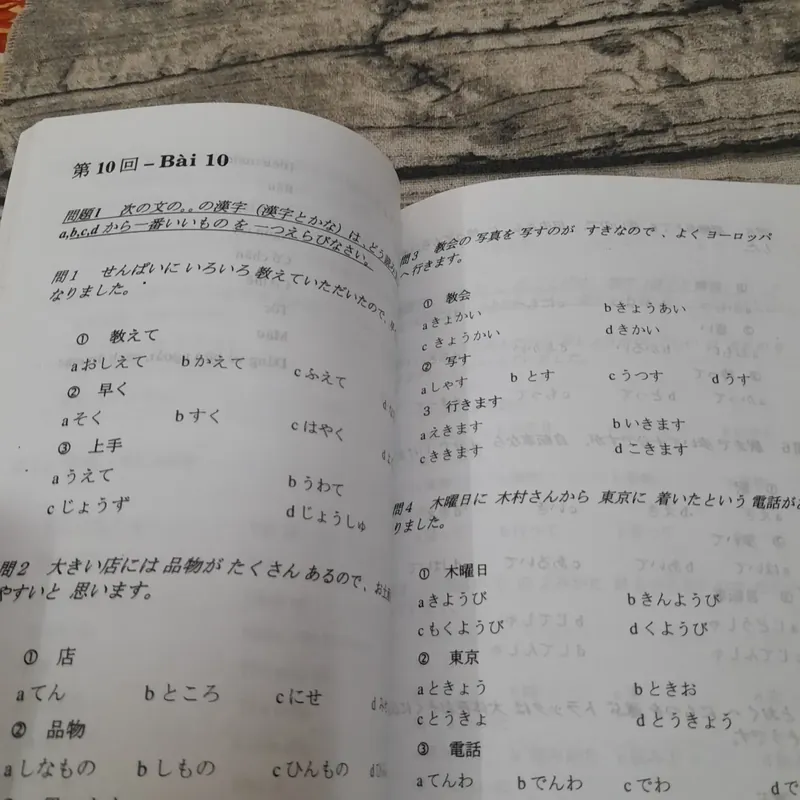 第10回 – Bài 10
問題1 次の文の。。の漢字(漢字とかな)は、どう
a,b,c,d から一番いいもの を 一つえらびなさい。
問1 せんぱいに いろいろ 教えていただいたので、
なりました。
① 教えて
aおしえて bかえて cふえて
② 早く
aそく bすく cはやく
③ 上手
aうえて bうわて
cじょうず dじょうしゅ
問2 大きい店には 品物が たくさん あるので、お
やすいと 思います。
① 店
aてん bところ cにせ
② 品物
aしなもの bしもの cひんもの
問3 教会の 写真を 写すのが すきなので 、よく ヨーロッパ
へ行きます。
① 教会
aきょかい bきょうあい
c きょうかい dきかい
② 写す
aしゃす b とす cうつす dうす
3 行きます
aえきます bいきます
cききます dこきます
問4 木曜日に 木村さんから 東京に 着いたという 電話が
りました。
① 木曜日
aきようび bきんようび
cもくようび dくようび
② 東京
aときょう bときお
cとうきょ dとうきょう
③ 電話
aてんわ bでんわ cでわ